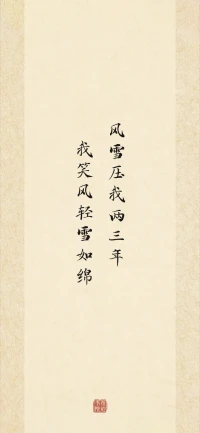 风雪压我两三年
我笑风轻雪如绵